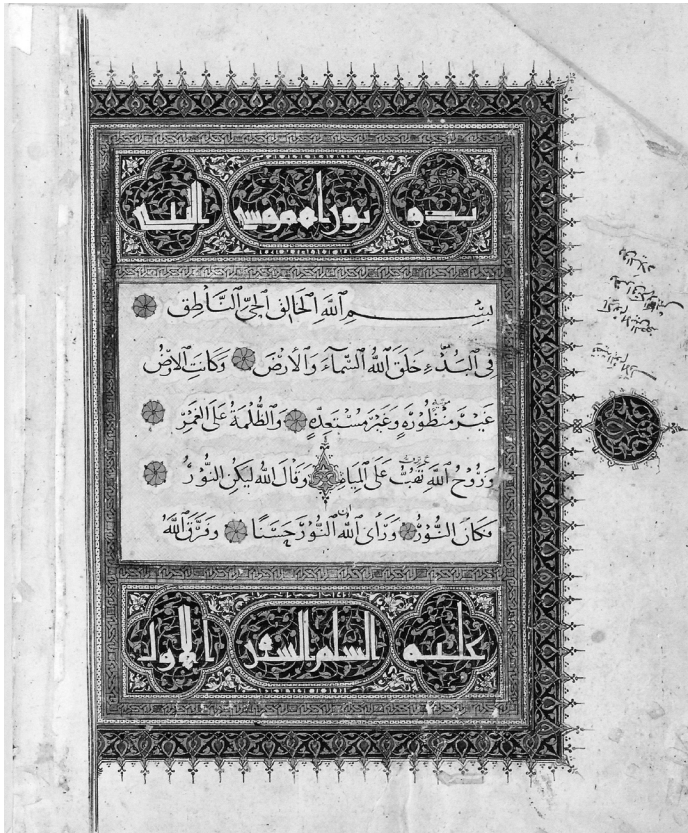 بدو توراه موسى النبى
بِسْمِ اللَّهِ الخَالِقِ الحَيِّ النَّاطِقِ
فِي البَدْءِ خَلَقَ اللهُ السَّمَآءَ وَالأَرْضَ وَكَانَتِ الاَرْضُ
غَيْرَ مَنْظُورَةٍ وَغَيْرَ مُسْتَعِدَّةٍ وَالظُّلْمَةُ عَلَى الغَمْرِ
وَرُوحُ اللَّهِ تَهُبُّ عَلَى المِيَاهِ وَقَالَ اللهُ لِيَكُنِ النُّورُ
فَكَانَ النُّورُ وَرَأَى اللهُ النُّورَ حَسَنًا وَفَرَّقَ اللَّهُ
عليه السلم السفر الاول